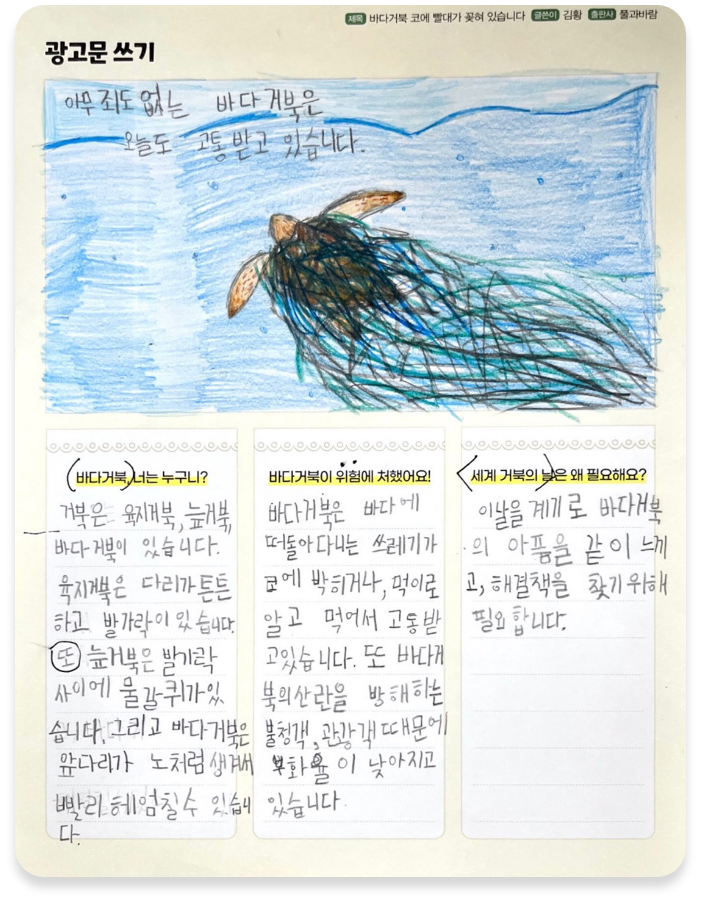 제목 바다거북 코에 빨대가 꽂혀 있습니다 글쓴이 김황 출판사 풀과바람
광고문 쓰기
아무 죄도 없는 바다거북은
오늘도 고통받고 있습니다.
바다거북, 너는 누구니?
거북은 육지거북, 늪거북,
바다거북이 있습니다.
육지거북은 다리가 튼튼
하고 발가락이 있습니다.
또 늪거북은 발가락
사이에 물갈퀴가 있
습니다, 그리고 바다거북은
앞다리가 노처럼 생겨서
빨리 헤엄칠수 있습니
다.
바다거북이 위험에 처했어요!
바다거북은 바다에
떠돌아다니는 쓰레기가
코에 박히거나, 먹이로
알고 먹어서 고통받
고있습니다. 또 바다거
북의산란을 방해하는
불청객, 관광객 때문에
부화율이 낮아지고
있습니다.
세계 거북의 날은 왜 필요해요?
이날을 계기로 바다거북
의 아픔을 같이 느끼
고, 해결책을 찾기위해
필요합니다.